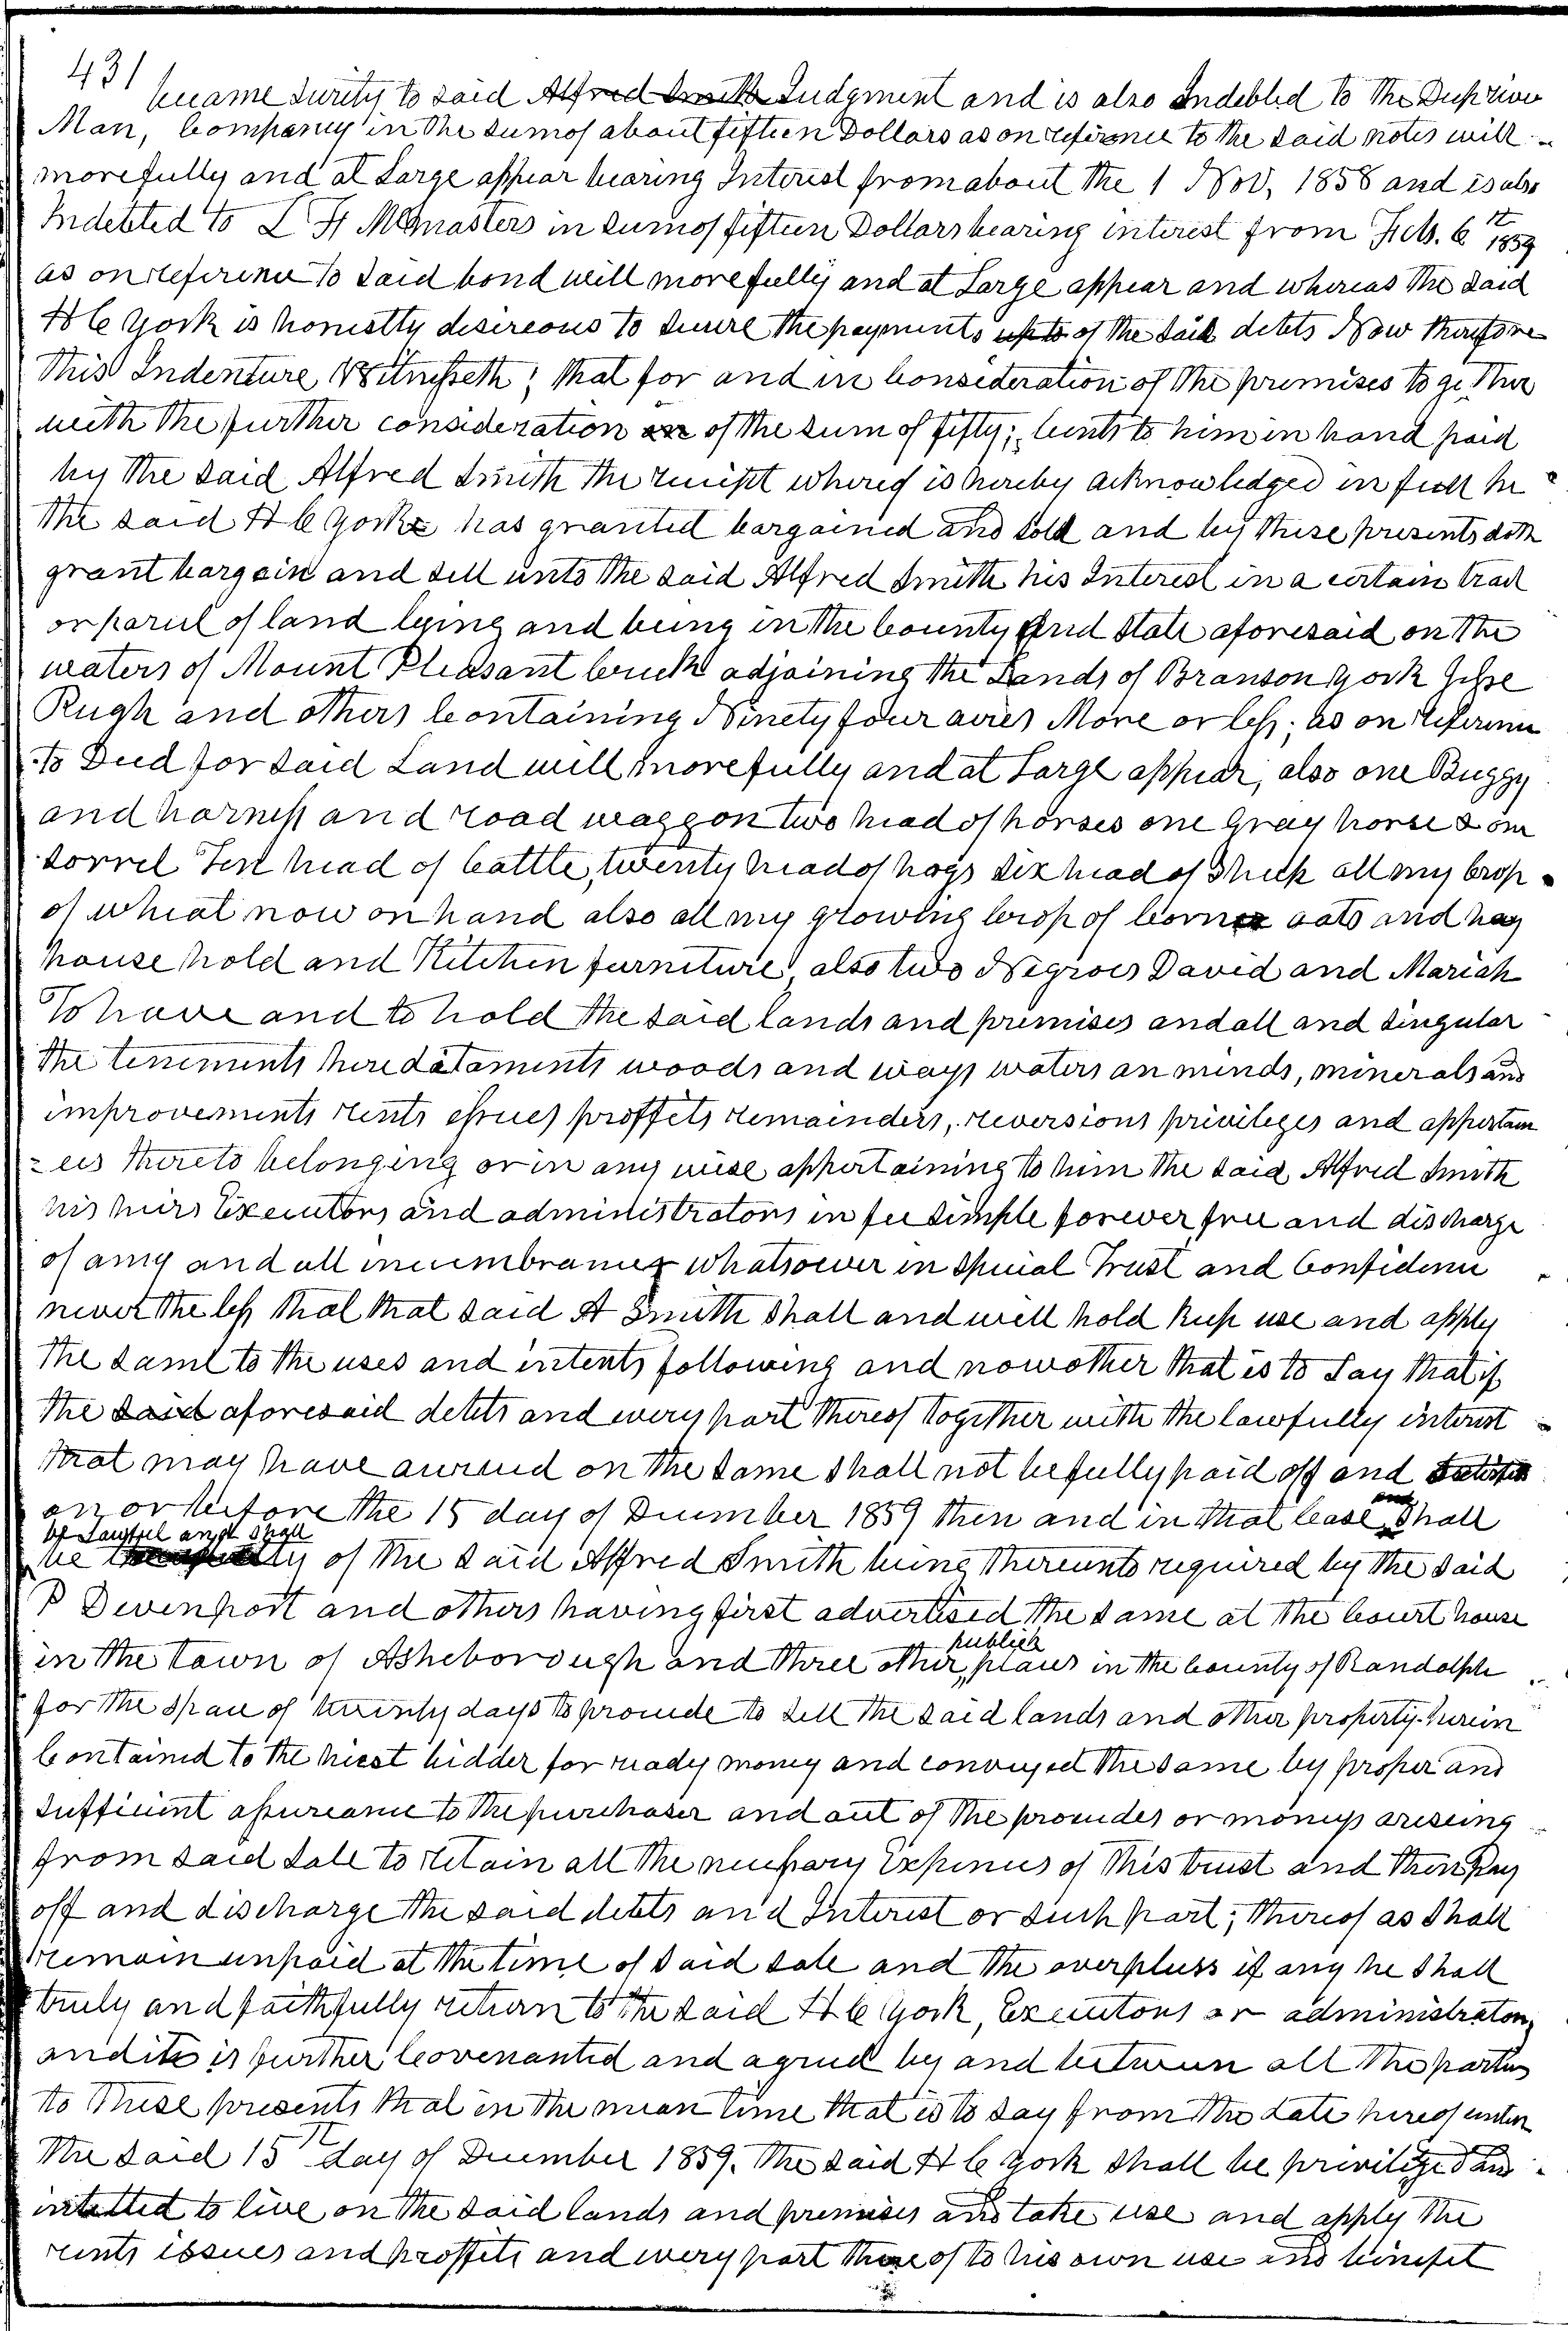 431
became surity to said Alfred Smith Judgment and is also Indebted to the Deep river
Man, Company in the sum of about fifteen Dollars as on referance to the said notes will
more fully and at Large appear bearing Interest from about the 1 Nov, 1858 and is also
Indebted to L H McMasters in sum of fifteen Dollars bearing interest from Feb. 6 1859
as on referince to said bond will more fully and at Large appear and whereas the said
H C York is honestly desireous to secure the payments up to of the said debts Now therefore
This Indenture Witnesseth; that for and in Consideration of the premises together
with the further consideration in of the sum of fifty; Cents to him in hand paid
by the said Alfred Smith the receipt whereof is hereby acknowledged in full he
the said H C York has granted bargained and sold and by these presents doth
grant bargain and sell unto the said Alfred Smith his Interest in a certain tract
or parcel of land lying and being in the County and State aforesaid on the
waters of Mount Pleasant Creek adjoining the Lands of Branson York Jesse
Pugh and others Containing Ninety four acres More or less; as on referince
to Deed for said Land will more fully and at Large appear, also one Buggy
and harness and road waggon two head of horses one Gray horse & one
sorrel Ten head of Cattle, twenty head of hogs six head of Sheep all my Crop
of wheat now on hand also all my growing Crop of Corn oats and hay
house hold and Kitchen furniture also two Negroes David and Mariah
To have and to hold the said lands and premises and all and singular
the tenements heredataments woods and ways waters an minds, minerals and
improvements rents essues proffets remainders, reversions privileges and appertain
= ces thereto belonging or in any wise appertaining to him the said Alfred Smith
his heirs Executors and administrators in fee Simple forever free and discharge
of any and all incumbrances whatsoever in Special Trust and Confidence
never the less that that said A Smith shall and will hold keep use and apply
the same to the uses and intents following and nowother that is to Say that if
the said aforesaid debts and every part thereof together with the lawfully interest
that may have accrued on the same shall not be fully paid off and satisfied
on or before the 15 day of December 1859 then and in that Case and shall
be Lawful and shall
be the duty of the said Alfred Smith being thereunto required by the said
P Devenport and others having first advertised the same at the Court house
in the town of Asheborough and three other publick places in the County of Randolph
for the space of twenty days to procede to sell the said lands and other property herein
Contained to the hiest bidder for ready money and conveyed the same by proper and
sufficient assureance to the purchaser and out of the procedes or moneys ariseing
from said sale to retain all the necessary Expences of this trust and then Pay
off and discharge the said debts and Interest or such part; thereof as Shall
remain unpaid at the time of said sale and the overpluss if any he shall
truly and faithfully return to the said H C York, Executors or administrators
and its is further Covenanted and agreed by and between all the parties
to these presents that in the mean time that is to say from the date hereof unten
the said 15 day of December 1859. The said H C York shall be priviliged and
intitled to live on the said lands and premises and take use and apply the
rents issues and proffits and every part there of to his own use and binefit